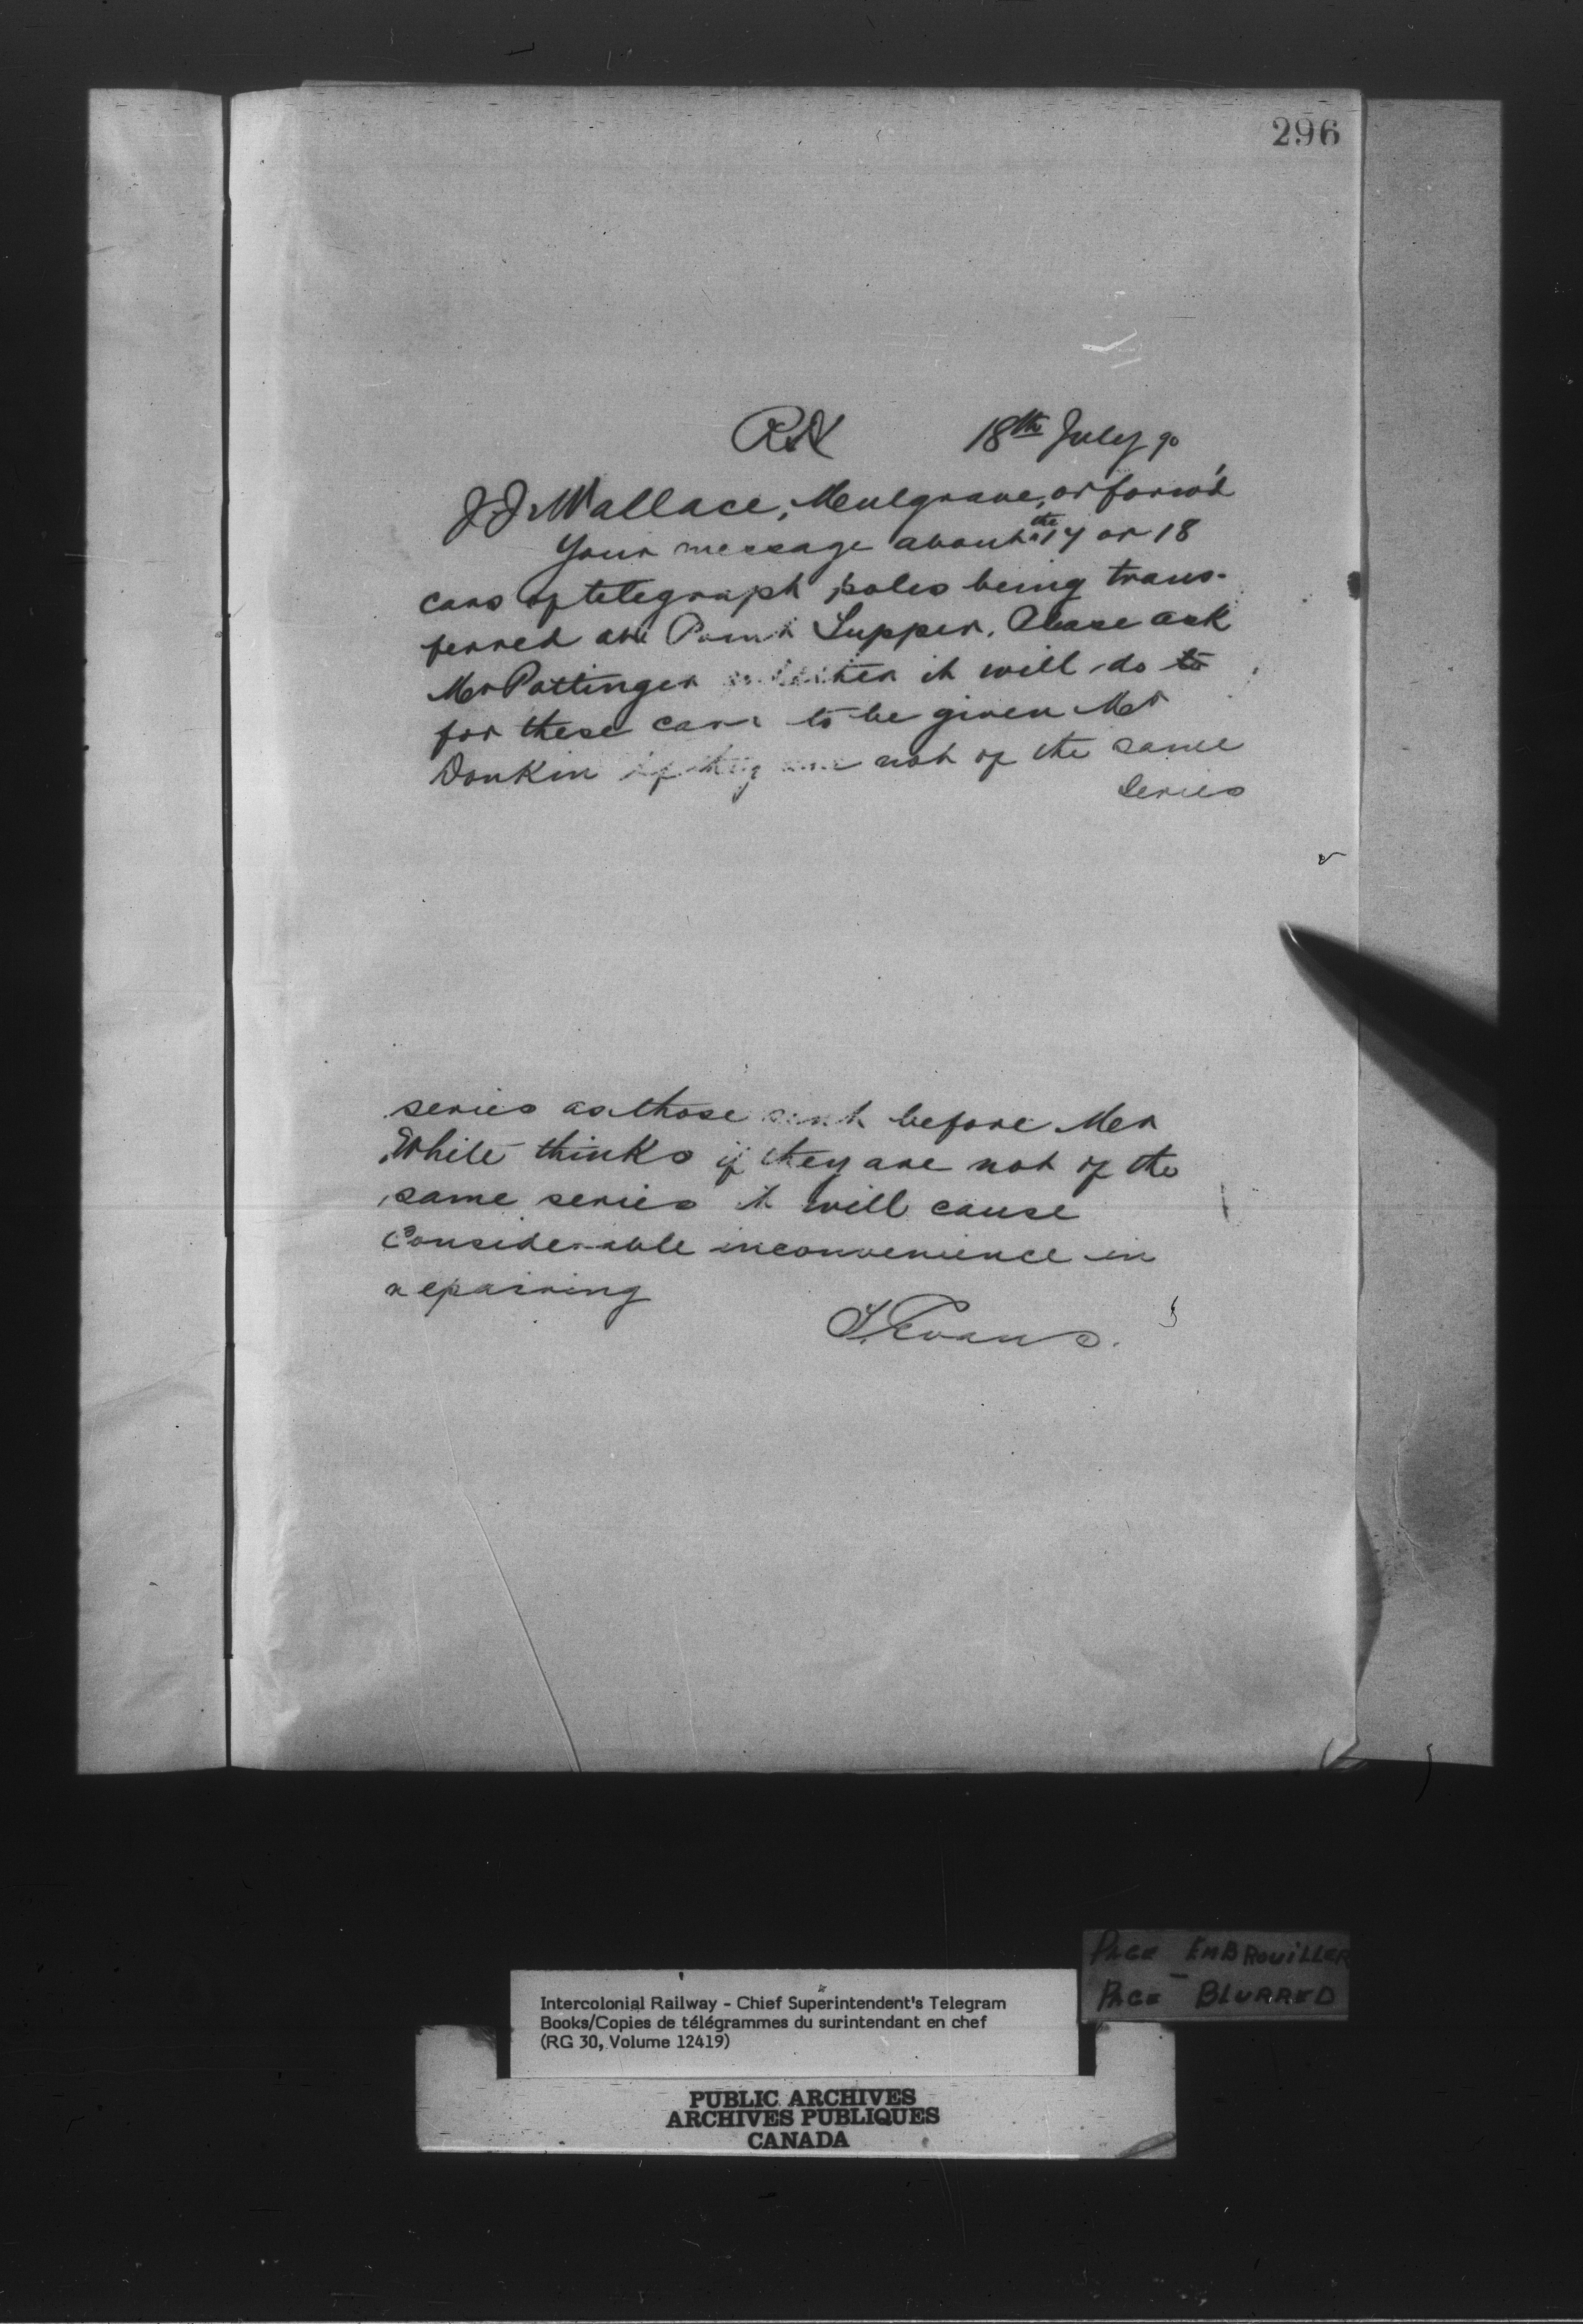 296
RN 18th July 90
J.J. Wallace, Mulgrave, or forw'd
Your message about the 17 or 18
cars of telegraph poles being trans-
ferred at Point Tupper. Please ask
Mr Pottinger whether it will do to
for these cars to be given Mr
Donkin if they are not of the same
series
series as those sent before Mr
White thinks if they are not of the
same series it will cause
Considerable inconvenience in
repairing
T. Evans.
PAGE EMBROUILLER
PAGE - BLURRED
Intercolonial Railway - Chief Superintendent's Telegram
Books/Copies de télégrammes du surintendant en chef
(RG 30, Volume 12419)
PUBLIC ARCHIVES
ARCHIVES PUBLIQUES
CANADA